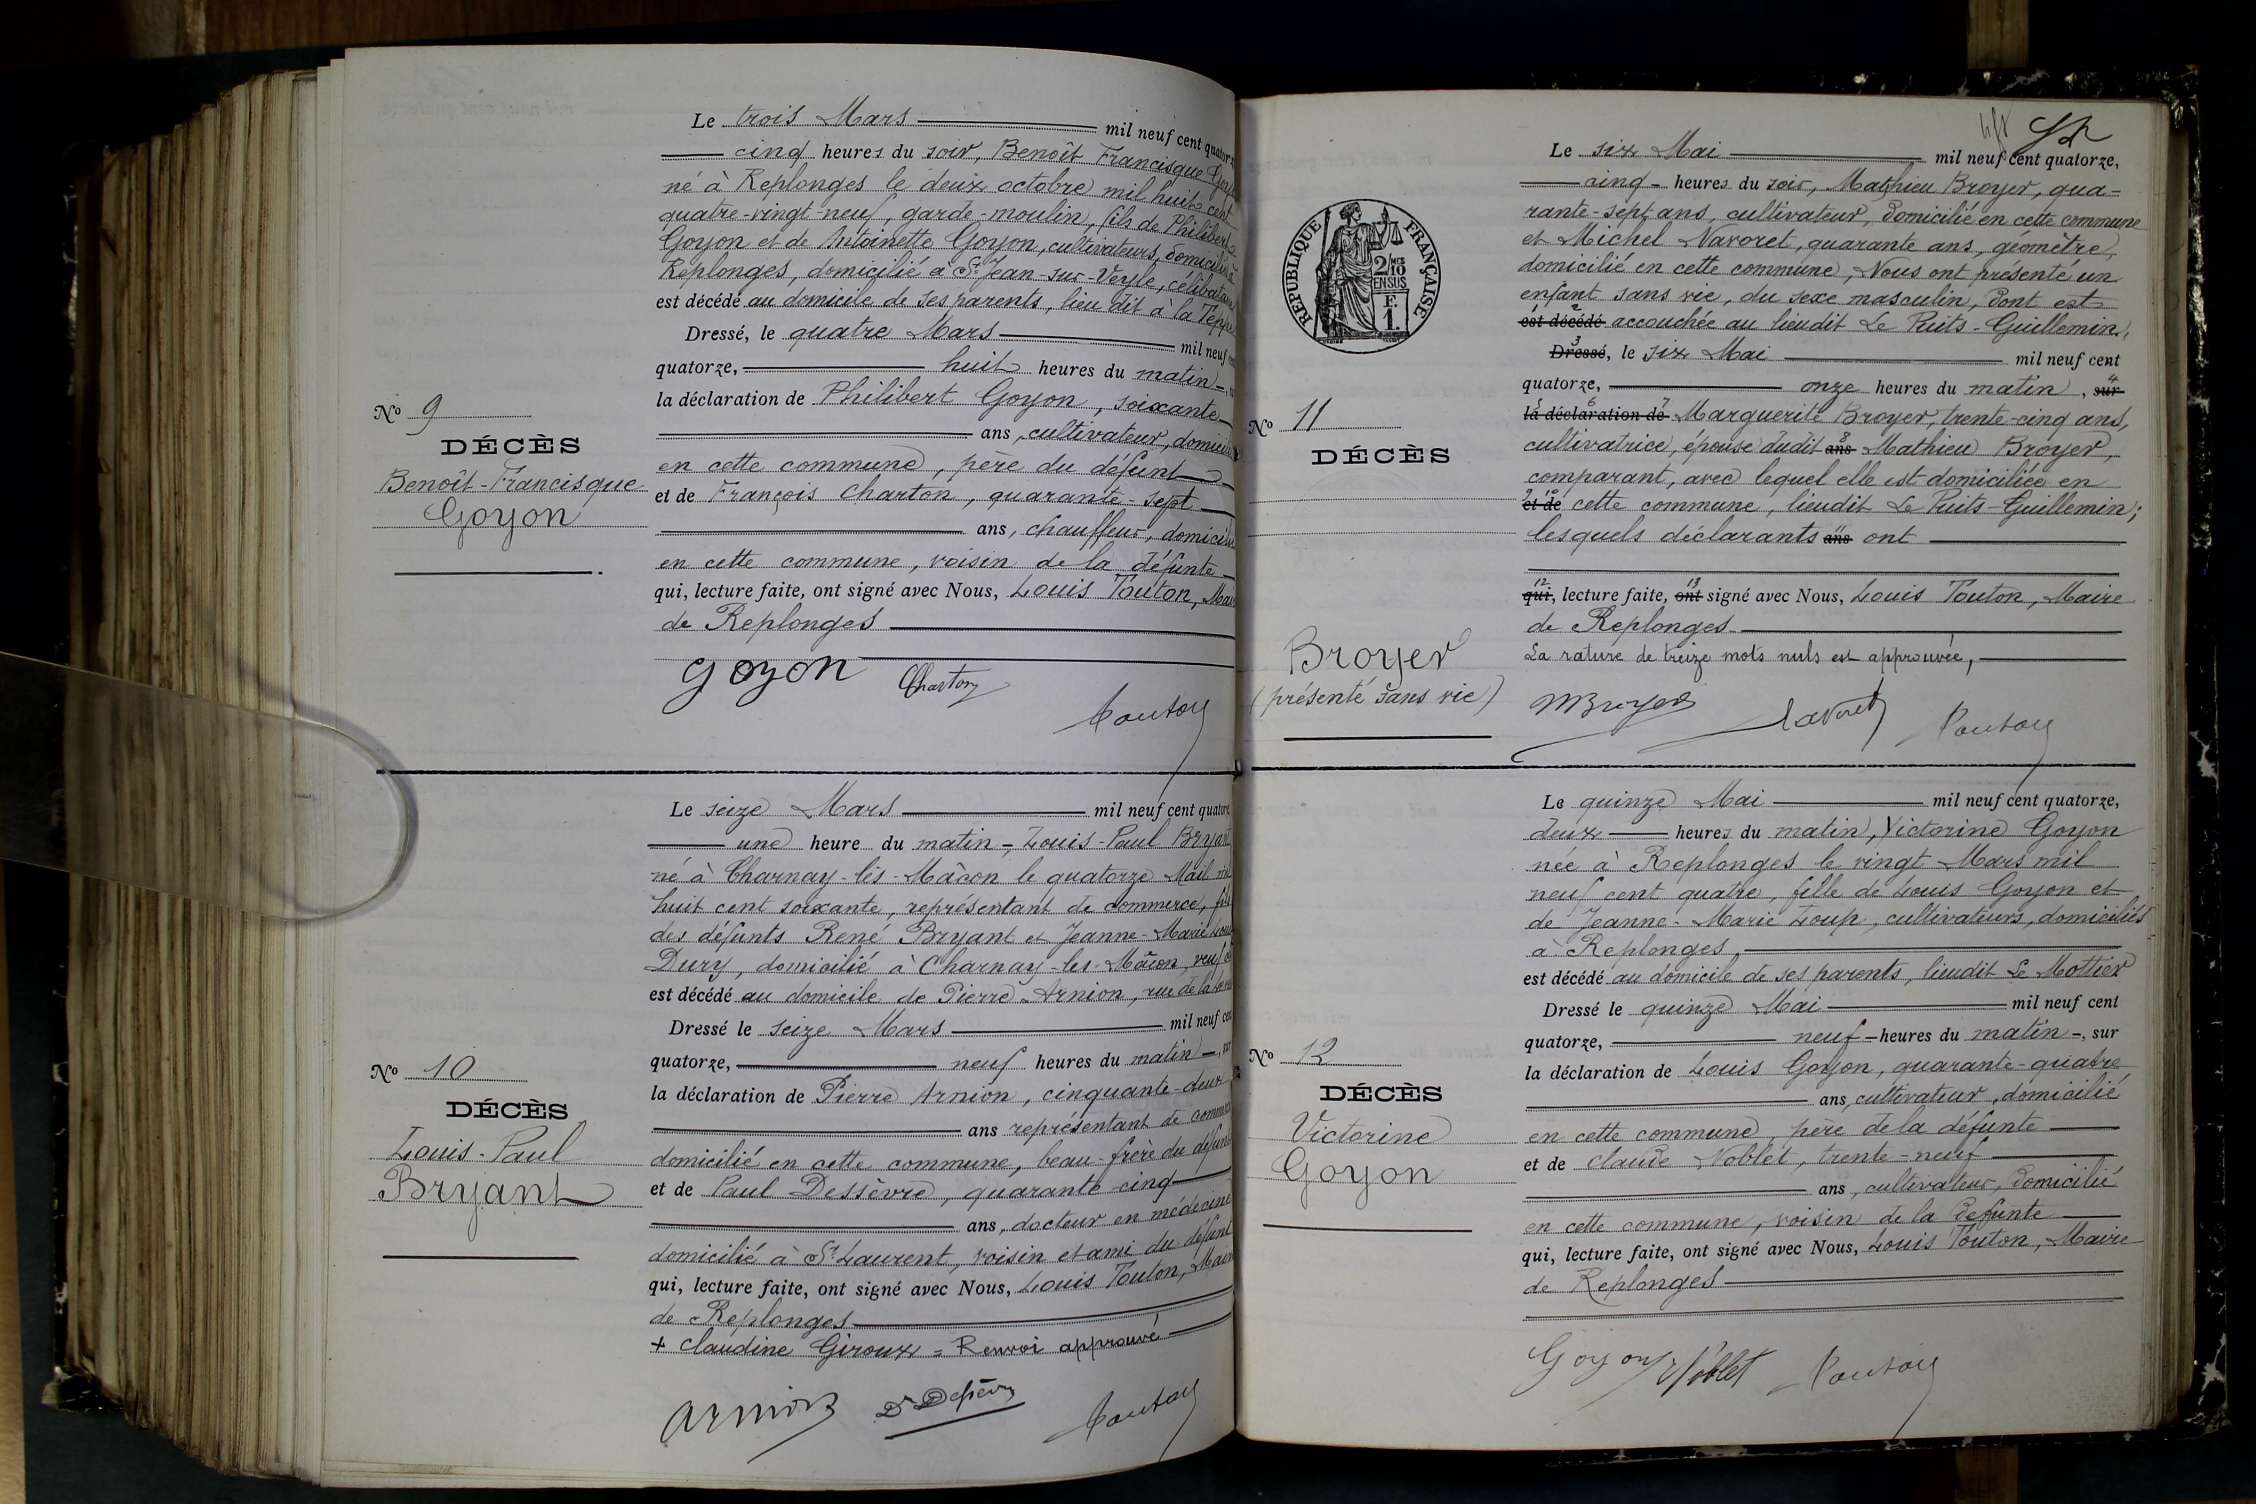 Le trois Mars mil neuf cent quatorze
cinq heures du soir, Benoît Francisque Goyon
né à Replonges le deux octobre mil huit cent
quatre-vingt-neuf, garde-moulin, fils de Philibert
Goyon et de Antoinette Goyon, cultivateurs, domiciliés à
Replonges, domicilié à St Jean-sur-Veyle, célibataire
est décédé au domicile de ses parents, lieu dit à la Teppe
Dressé, le quatre Mars mil neuf cent
quatorze, huit heures du matin -, sur
la déclaration de Philibert Goyon, soixante
ans, cultivateur, domicilié
en cette commune, père du défunt
et de François Charton, quarante-sept
ans, chauffeur, domicilié
en cette commune, voisin de la défunte
qui, lecture faite, ont signé avec Nous, Louis Touton, Maire
de Replonges
No 9
DÉCÈS
Benoît-Francisque
Goyon
Goyon Charton
Touton
Le seize Mars mil neuf cent quatorze
une heure du matin -, Louis-Paul Bryant
né à Charnay-lès-Mâcon le quatorze Mai mil
huit cent soixante, représentant de commerce, fils
des défunts René Bryant et Jeanne-Marie
Dury, domicilié à Charnay-les-Mâcon, veuf de
est décédé au domicile de Pierre Arnion, rue de la
Dressé le seize Mars mil neuf cent
quatorze, neuf heures du matin -, sur
la déclaration de Pierre Arnion, cinquante-deux
ans représentant de commerce
domicilié en cette commune, beau-frère du défunt
et de Paul Dessèvre, quarante-cinq
ans, docteur en médecine
domicilié à St Laurent, voisin et ami du défunt
qui, lecture faite, ont signé avec Nous, Louis Touton, Maire
de Replonges
+ Claudine Giroux = Renvoi approuvé
No 10
DÉCÈS
Louis-Paul
Bryant
Arnion Dr Dessèvre Touton
Le six Mai mil neuf cent quatorze,
cinq - heures du soir, Mathieu Broyer, qua-
rante-sept ans, cultivateur, domicilié en cette commune
et Michel Navoret, quarante ans, géomètre,
domicilié en cette commune, Nous ont présenté un
enfant sans vie, du sexe masculin, dont est
1 2
est décédé accouchée au lieudit Le Puits-Guillemin,
3
Dressé, le six Mai mil neuf cent
4
quatorze, onze heures du matin, sur
5 6 7
la déclaration de Marguerite Broyer, trente-cinq ans,
8
cultivatrice, épouse dudit ans Mathieu Broyer,
comparant, avec lequel elle est domiciliée en
9 10
et de cette commune, lieudit Le Puits-Guillemin;
11
lesquels déclarants ans ont
12 13
qui, lecture faite, ont signé avec Nous, Louis Touton, Maire
de Replonges
La rature de treize mots nuls est approuvée,
RÉPUBLIQUE FRANÇAISE
2/10 MES
EN SUS
F.
1.
No 11
DÉCÈS
Broyer
(présenté sans vie)
MBroyer Navoret Touton
Le quinze Mai mil neuf cent quatorze,
deux heures du matin, Victorine Goyon
née à Replonges le vingt Mars mil
neuf cent quatre, fille de Louis Goyon et
de Jeanne-Marie Loup, cultivateurs, domiciliés
à Replonges,
est décédé au domicile de ses parents, lieudit Le Mottier
Dressé le quinze Mai mil neuf cent
quatorze, neuf - heures du matin -, sur
la déclaration de Louis Goyon, quarante-quatre
ans, cultivateur, domicilié
en cette commune, père de la défunte
et de Claude Noblet, trente-neuf
ans, cultivateur, domicilié
en cette commune, voisin de la défunte
qui, lecture faite, ont signé avec Nous, Louis Touton, Maire
de Replonges
No 12
DÉCÈS
Victorine
Goyon
Goyon Noblet Touton